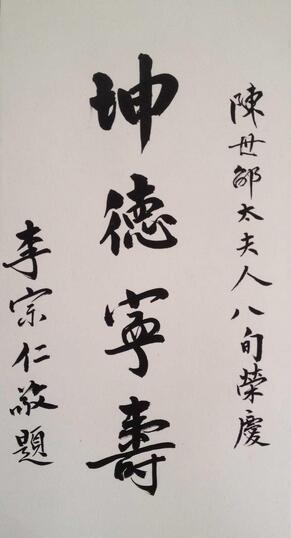 陳世邹太夫人八旬榮慶
坤德寧壽
李宗仁敬題